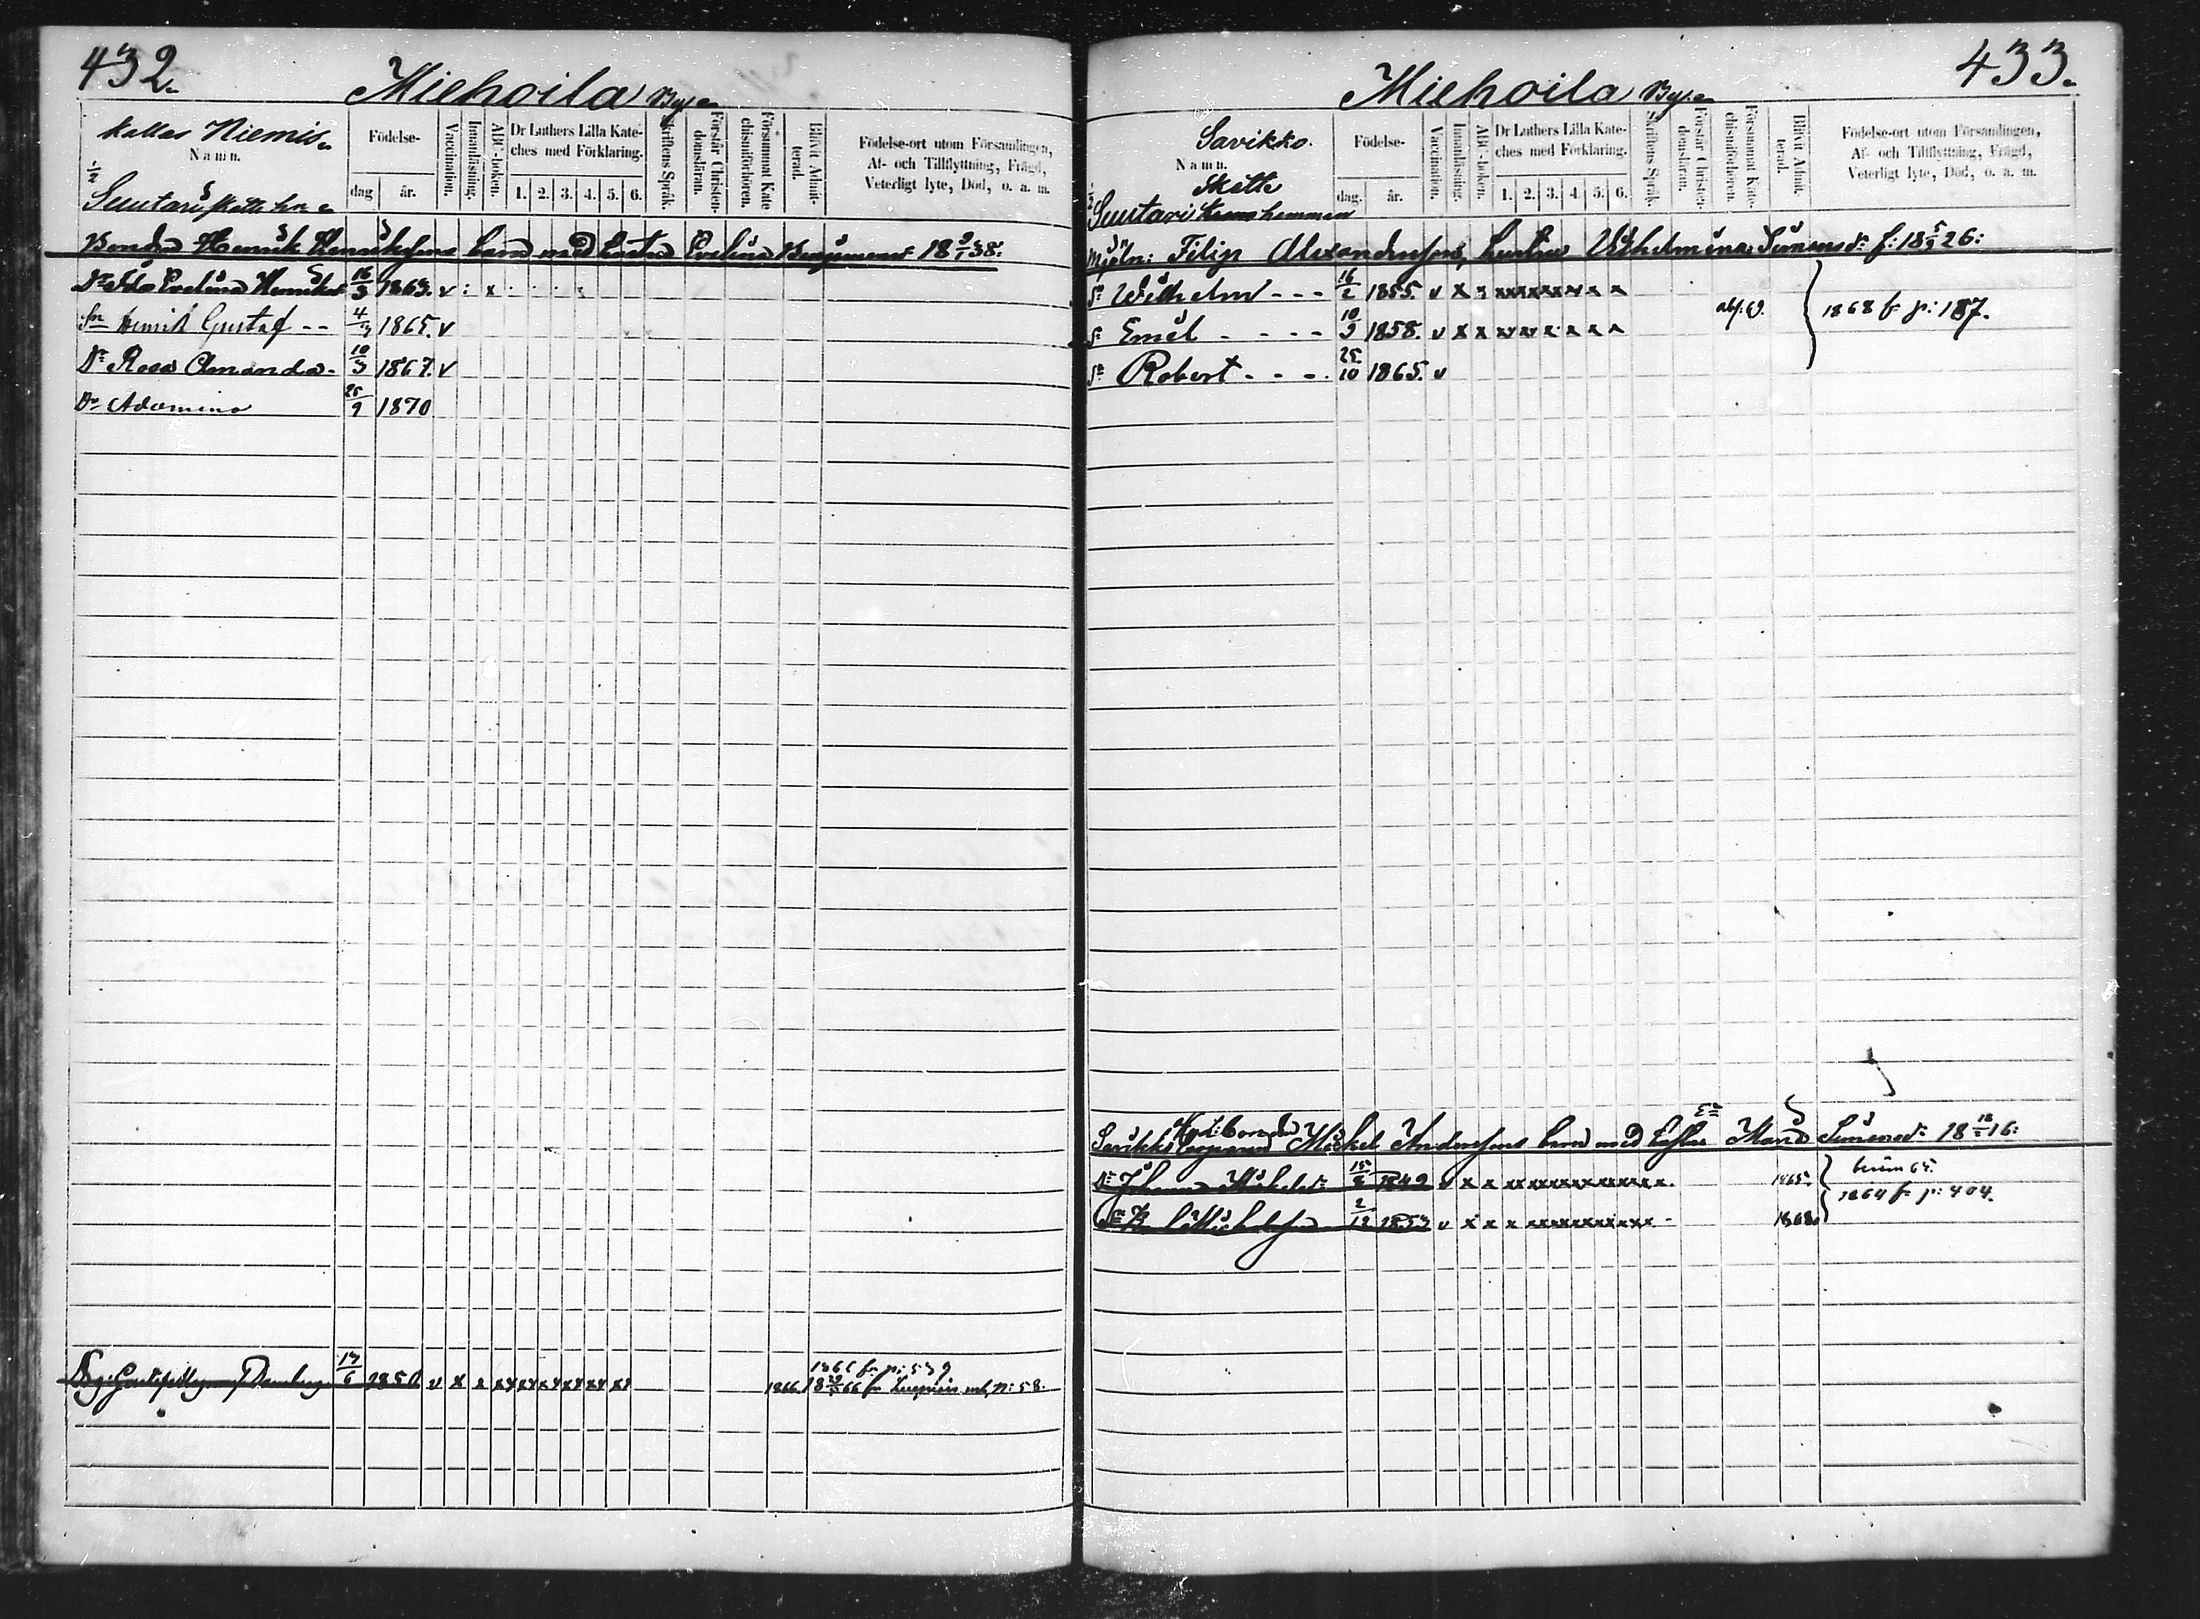 432.
Miehoila By.
kallas Niemis.
Namn.
Födelse-
dag
år.
Vaccination.
Innanläsning.
ABC-boken.
Dr Luthers Lilla Kate-
ches med Förklaring.
1. 2. 3. 4. 5. 6.
Skriftens Språk.
Förstår Christen-
domsläran.
Försummat Kate
chismiförhören.
Blifvit Admit-
terad.
Födelse-ort utom Församlingen,
Af- och Tillflyttning, Frägd,
Veterligt lyte, Död, o. a. m.
1/2
Suutari skatte
Bonden Henrik Henrikssons barn med hustru Evelina Benjaminsdr 18 9/1 38.
Dr Ida Evelina Henriksdr 16/3 1863. v : x
Sn Henrik Gustaf -- 4/3 1865. v
Dr Rosa Amanda - 10/3 1867. v
Dr Adamina 25/9 1870
13/6 1850 v x x xx xx xx xx xx xx 1866.
186 fr p: 539
66 fr p: 58.
433.
Miehoila By.
Savikko.
Namn.
Skatte
Suutari hemman
Födelse-
dag.
år.
Vaccination.
Innanläsning.
ABC-boken.
Dr Luthers Lilla Kate-
ches med Förklaring.
1. 2. 3. 4. 5. 6.
Skriftens Språk.
Förstår Christen-
domsläran.
Försummat Kate-
chismiförhören.
Blifvit Admit-
terad.
Födelse-ort utom Församlingen,
Af- och Tillflyttning, Frägd,
Veterligt lyte, Död, o. a. m.
Mjöln: Filip Alexandersson, hustru Vilhelmina Simonsdr: f: 18 5/9 26:
Sn Wilhelm --- 16/2 1855. v x x xxxxxxxx x x
1868 fr p: 187.
Sn Emil - - - - 10/9 1858. v x x xx xx x x x x
Sn Robert - - - . 25/10 1865. v
Savikko Mickel Anderssons barn med hustru Maria Simonsdr: 18 18/ 16:
Dr Johanna Mickelsdr: 15/ 1849 v x x xx xxxxxxxxxxxx. 1865.
1864 fr p: 404.
2/12 1853 v x x x xxxxxxxxxxxx - 1868.